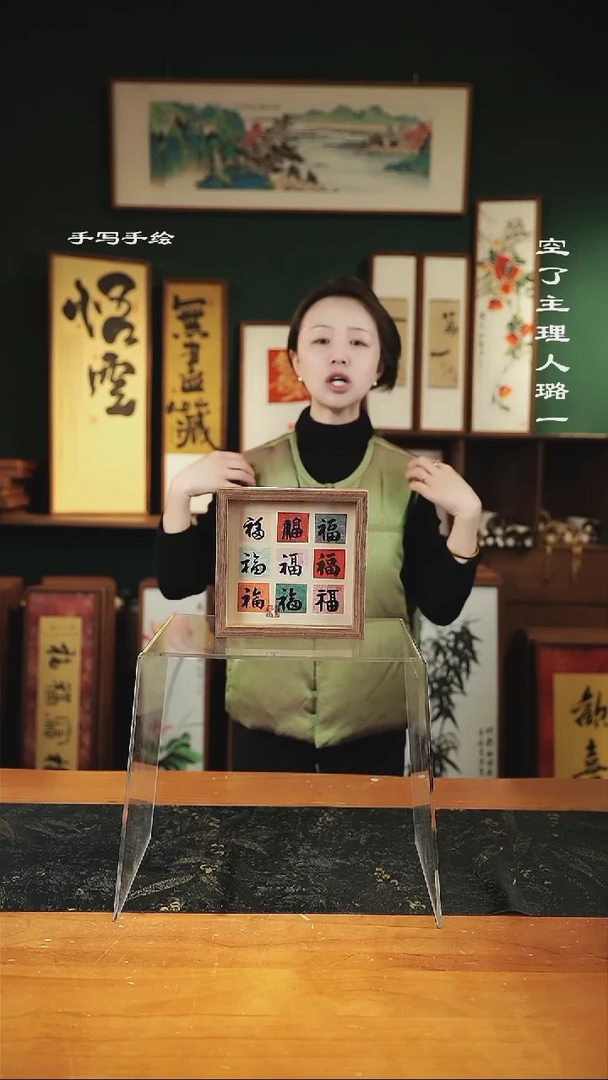 手写手绘
空了主理人璐一
悟空
無盡藏
福福福
福福福
福福福
歡喜